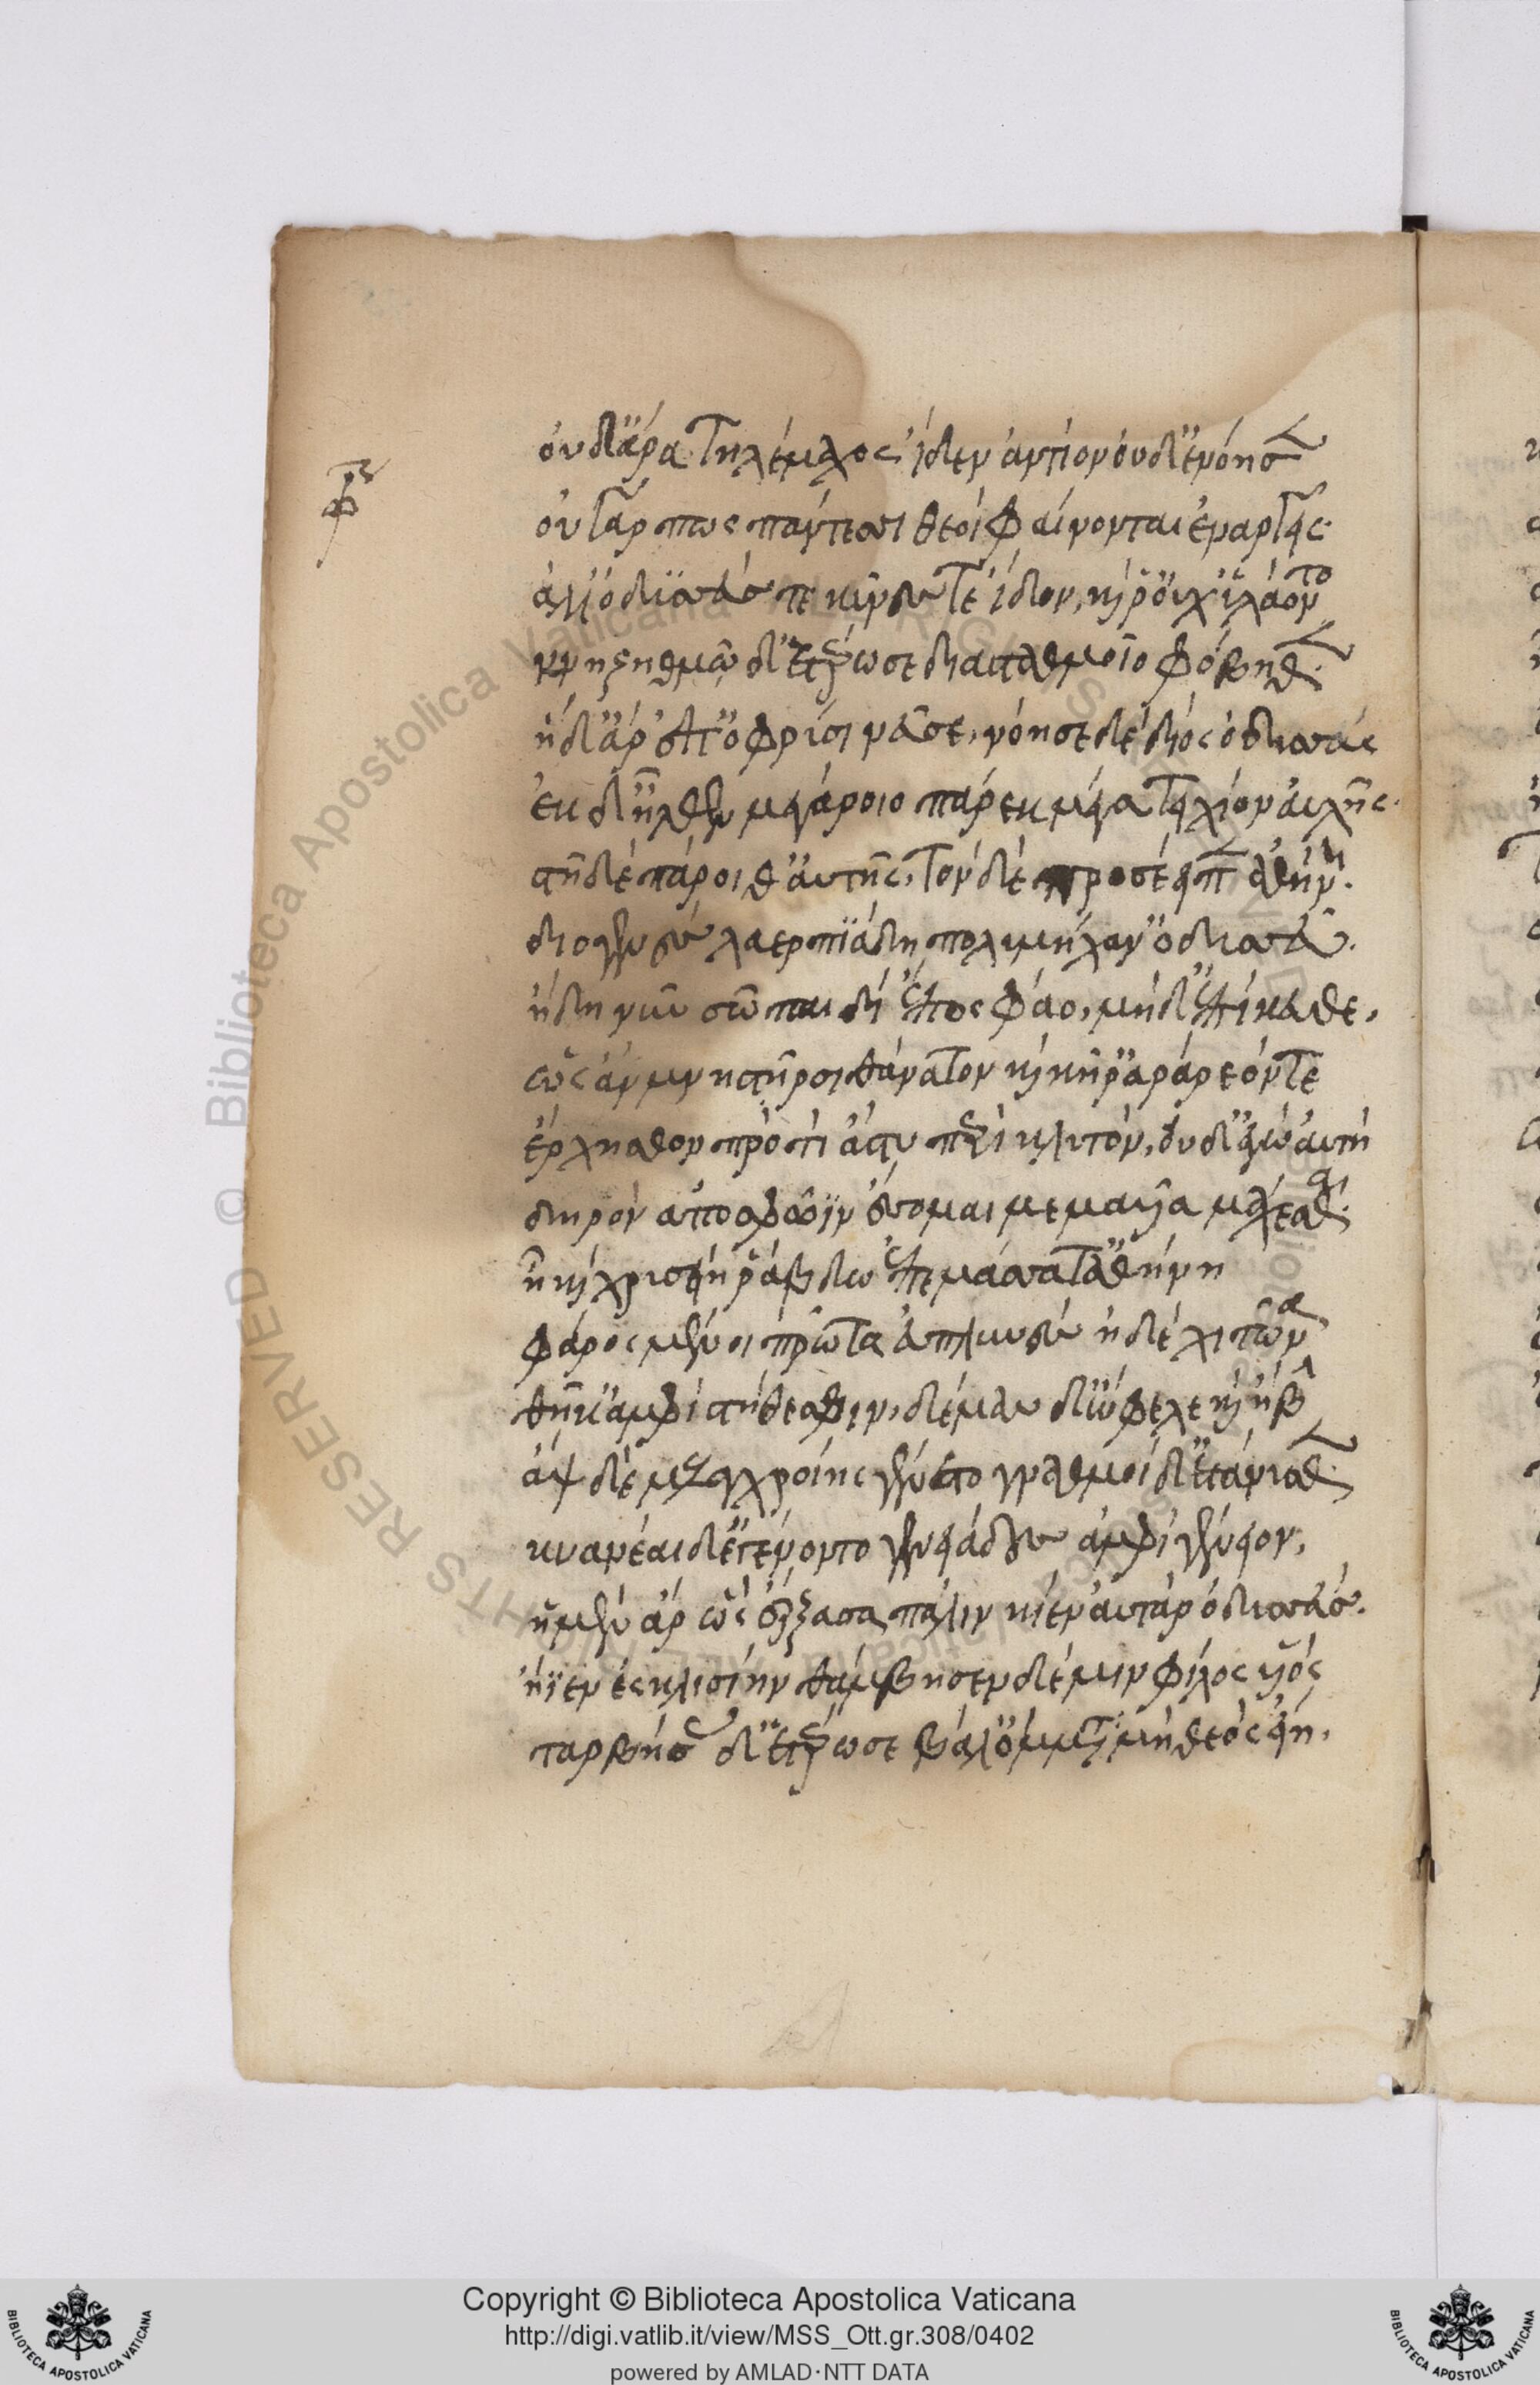 οὐδ' ἄρα Τηλέμαχος ἴδεν ἀντίον οὐδ' ἐνόησε
οὐ γάρ πως πάντεσσι θεοὶ φαίνονται ἐναργεῖς·
ἀλλ' ὀδυσσεύς τε κύνες τε ἴδον, καί ῥ' οὐχ' ὑλάοντο
κνυζηθμῶ δ' ἑτέρωσε διὰ σταθμοῖο φόβηθεν·
ἡ δ' ἄρ' ἐπ' ὀφρύσι νεῦσε, νόησε δὲ δῖος ὀδυσσεύς
ἐκ δ' ἦλθεν μεγάροιο παρὲκ μέγα τειχίον αὐλῆς·
στῆ δὲ πάροιθ' αὐτῆς, τὸν δὲ προσέειπεν ἀθήνη·
διογενὲς λαερτιάδη πολυμήχαν' ὀδυσσεῦ·
ἤδη νῦν σῶ παιδὶ ἔπος φάο, μηδ' ἐπίκευθε,
ὡς ἂν μνηστῆρσι θάνατον καὶ κῆρ' ἀραρόντε
ἔρχησθον προτὶ ἄστυ περικλυτόν, οὐδ' ἐγὼ αὐτὴ
δηρὸν ἀπὸ σφῶϊν ἔσομαι μεμαυῖα μάχεσθαι·
ἦ καὶ χρυσείη ῥάβδω ἐπεμάσσατ' ἀθήνη
φάρος μέν οἱ πρῶτα ἐυπλυνὲς ἠδὲ χιτῶνα
θῆκ' ἀμφὶ στήθεσφιν, δέμας δ' ὤφελε καὶ ἥβην
ἂψ δὲ μελαγχροιὴς γένετο γναθμοὶ δ' ἐτάνυσθεν·
κυανέαι δ' ἐγένοντο γενειάδες ἀμφὶ γένειον,
ἡ μὲν ἄρ' ὣς ἔρξασα πάλιν κίεν αὐτὰρ ὀδυσσεύς·
ἤϊεν ἐς κλισίην θάμβησεν δέ μιν φίλος υἱός
ταρβήσας δ' ἑτέρωσε βάλ' ὄμματα μὴ θεὸς εἴη.